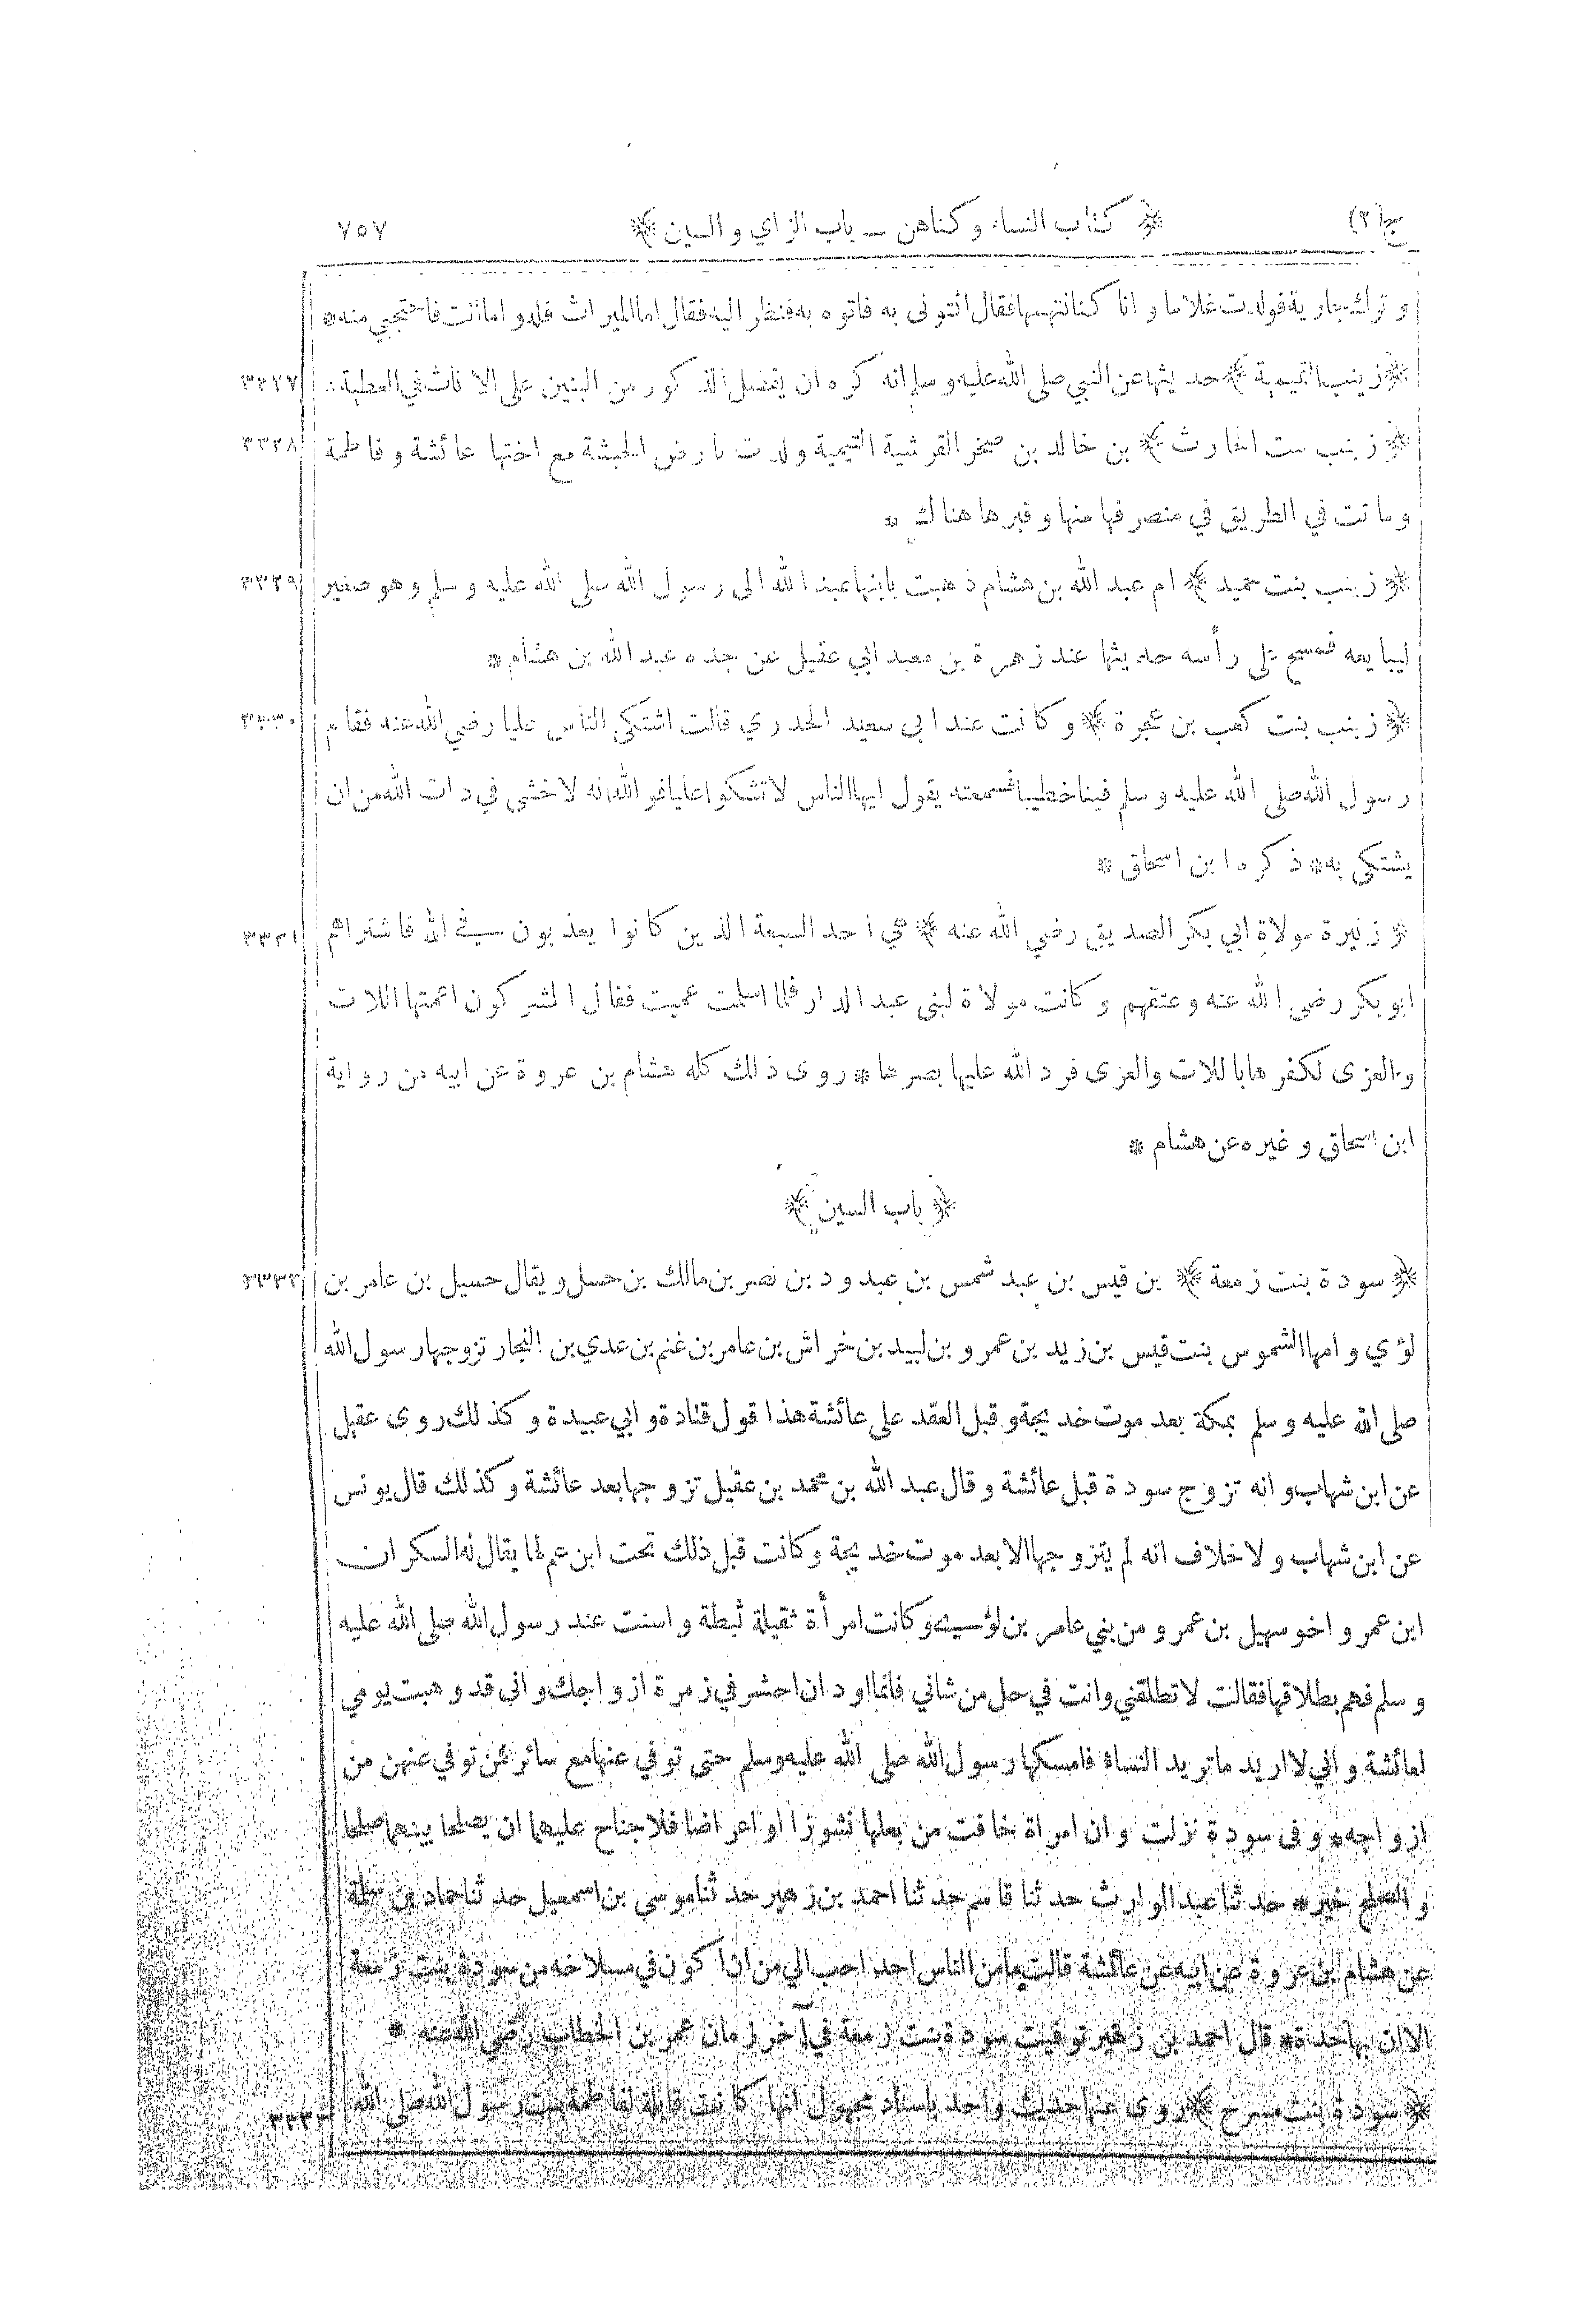 ج (٢) ﴿ كتاب النساء وكناهن — باب الزاي والسين ﴾ ٧٥٧
وترك جارية فولدت غلاما وانا كنا نتهمها فقال ائتونى به فاتوه به فنظر اليه فقال اما الميراث فله واما انت فاحتجبي منه *
﴿ زينب التميمية ﴾ حديثها عن النبي صلى الله عليه وسلم انه كره ان يفضل الذكور من البنين على الاناث في العطية * ٣٣٢٧
﴿ زينب بنت الحارث ﴾ بن خالد بن صخر القرشية التيمية ولدت بارض الحبشة مع اختها عائشة وفاطمة ٣٣٢٨
وماتت في الطريق في منصرفها منها وقبرها هناك *
﴿ زينب بنت حميد ﴾ ام عبد الله بن هشام ذهبت بابنها عبد الله الى رسول الله صلى الله عليه وسلم وهو صغير ٣٣٢٩
ليبايعه فمسح على رأسه حديثها عند زهرة بن معبد ابي عقيل عن جده عبد الله بن هشام *
﴿ زينب بنت كعب بن عجرة ﴾ وكانت عند ابى سعيد الخدري قالت اشتكى الناس عليا رضي الله عنه فقام ٣٣٣٠
رسول الله صلى الله عليه وسلم فينا خطيبا فسمعته يقول ايها الناس لا تشكوا عليا فوالله انه لاخشى في ذات الله من ان
يشتكى به * ذكره ابن اسحاق *
﴿ زنيرة مولاة ابي بكر الصديق رضي الله عنه ﴾ هي احد السبعة الذين كانوا يعذبون في الله فاشتراهم ٣٣٣١
ابو بكر رضي الله عنه وعتقهم وكانت مولاة لبنى عبد الدار فلما اسلمت عميت فقال المشركون اعمتها اللات
والعزى لكفرها باللات والعزى فرد الله عليها بصرها * روى ذلك كله هشام بن عروة عن ابيه من رواية
ابن اسحاق وغيره عن هشام *
﴿ باب السين ﴾
﴿ سودة بنت زمعة ﴾ بن قيس بن عبد شمس بن عبد ود بن نصر بن مالك بن حسل ويقال حسيل بن عامر بن ٣٣٣٢
لؤي وامها الشموس بنت قيس بن زيد بن عمرو بن لبيد بن خراش بن عامر بن غنم بن عدي بن النجار تزوجها رسول الله
صلى الله عليه وسلم بمكة بعد موت خديجة وقبل العقد على عائشة هذا قول قتادة وابي عبيدة وكذلك روى عقيل
عن ابن شهاب وانه تزوج سودة قبل عائشة وقال عبد الله بن محمد بن عقيل تزوجها بعد عائشة وكذلك قال يونس
عن ابن شهاب ولا خلاف انه لم يتزوجها الا بعد موت خديجة وكانت قبل ذلك تحت ابن عم لها يقال له السكران
ابن عمرو اخو سهيل بن عمرو من بني عامر بن لؤي وكانت امرأة ثقيلة ثبطة واسنت عند رسول الله صلى الله عليه
وسلم فهم بطلاقها فقالت لا تطلقني وانت في حل من شاني فانما اود ان احشر في زمرة ازواجك وانى قد وهبت يومي
لعائشة واني لا اريد ما تريد النساء فامسكها رسول الله صلى الله عليه وسلم حتى توفي عنها مع سائر من توفي عنهن من
ازواجه * وفى سودة نزلت وان امراة خافت من بعلها نشوزا او اعراضا فلا جناح عليهما ان يصلحا بينهما صلحا
والصلح خير * حدثنا عبد الوارث حدثنا قاسم حدثنا احمد بن زهير حدثنا موسى بن اسمعيل حدثنا حماد بن سلمة
عن هشام بن عروة عن ابيه عن عائشة قالت ما من الناس احد احب الي من ان اكون في مسلاخه من سودة بنت زمعة
الا ان بها حدة * قال احمد بن زهير توفيت سودة بنت زمعة في آخر زمان عمر بن الخطاب رضي الله عنه *
﴿ سودة بنت مسرح ﴾ روى عنها حديث واحد باسناد مجهول انها كانت قابلة لفاطمة بنت رسول الله صلى الله ٣٣٣٣